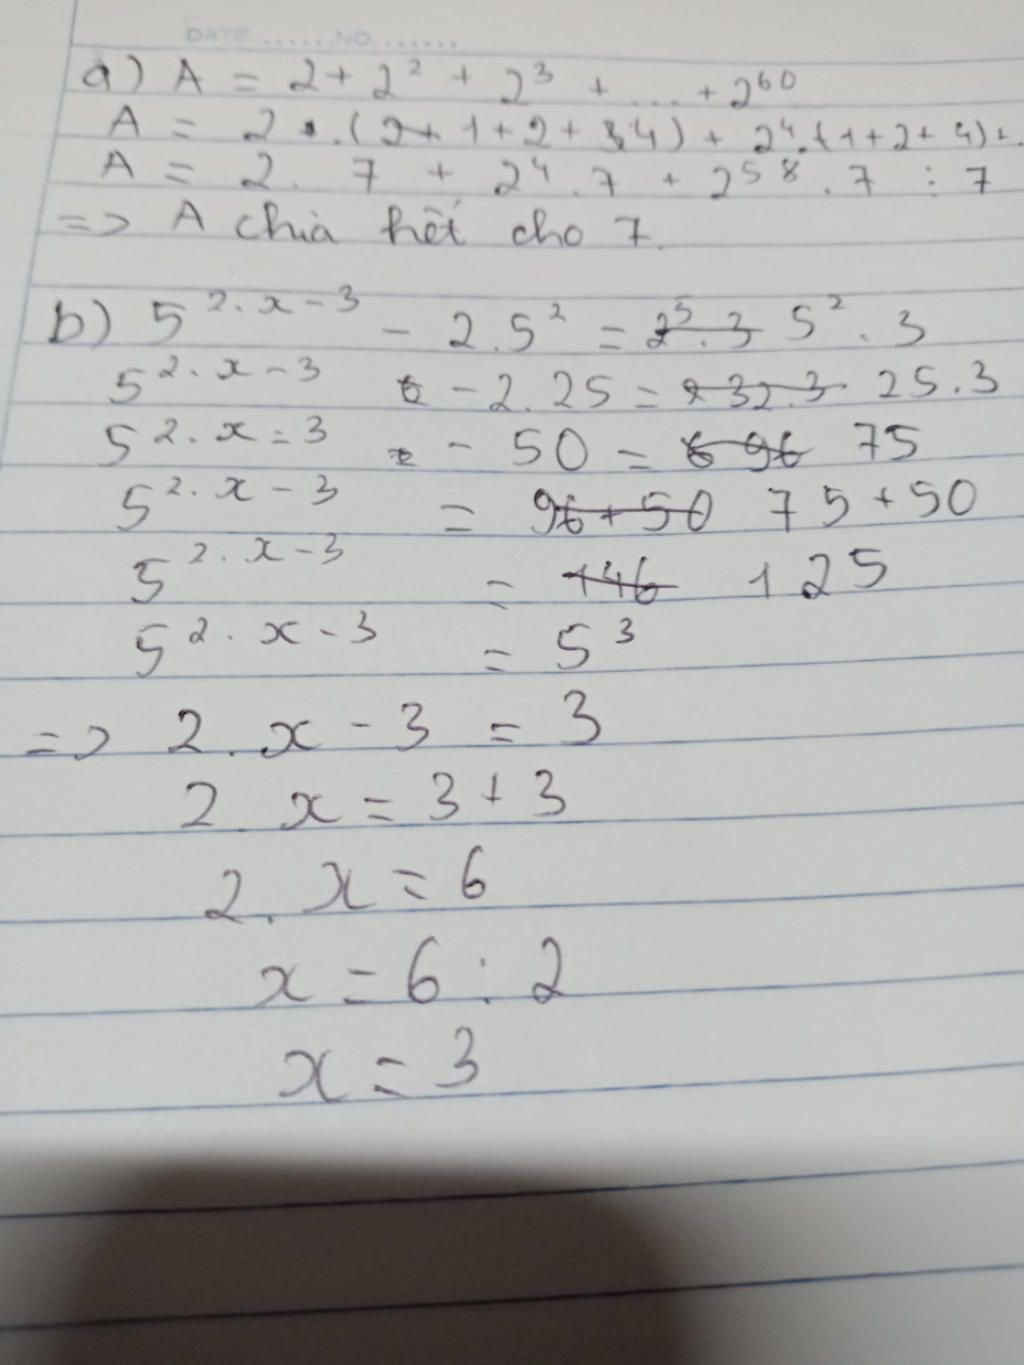 DATE.......NO.......
a) A = 2 + 2² + 2³ + ... + 2⁶⁰
A = 2 . (1 + 2 + 4) + 2⁴.(1 + 2 + 4) + .
A = 2. 7 + 2⁴.7 + 2⁵⁸.7 ⋮ 7
=> A chia hết cho 7.
b) 5^(2.x-3) - 2.5² = 2⁵.3 5².3
5^(2.x-3) - 2.25 = 32.3 25.3
5^(2.x=3) - 50 = 96 75
5^(2.x-3) = 96+50 75+50
5^(2.x-3) = 146 125
5^(2.x-3) = 5³
=> 2.x - 3 = 3
2.x = 3 + 3
2.x = 6
x = 6 : 2
x = 3